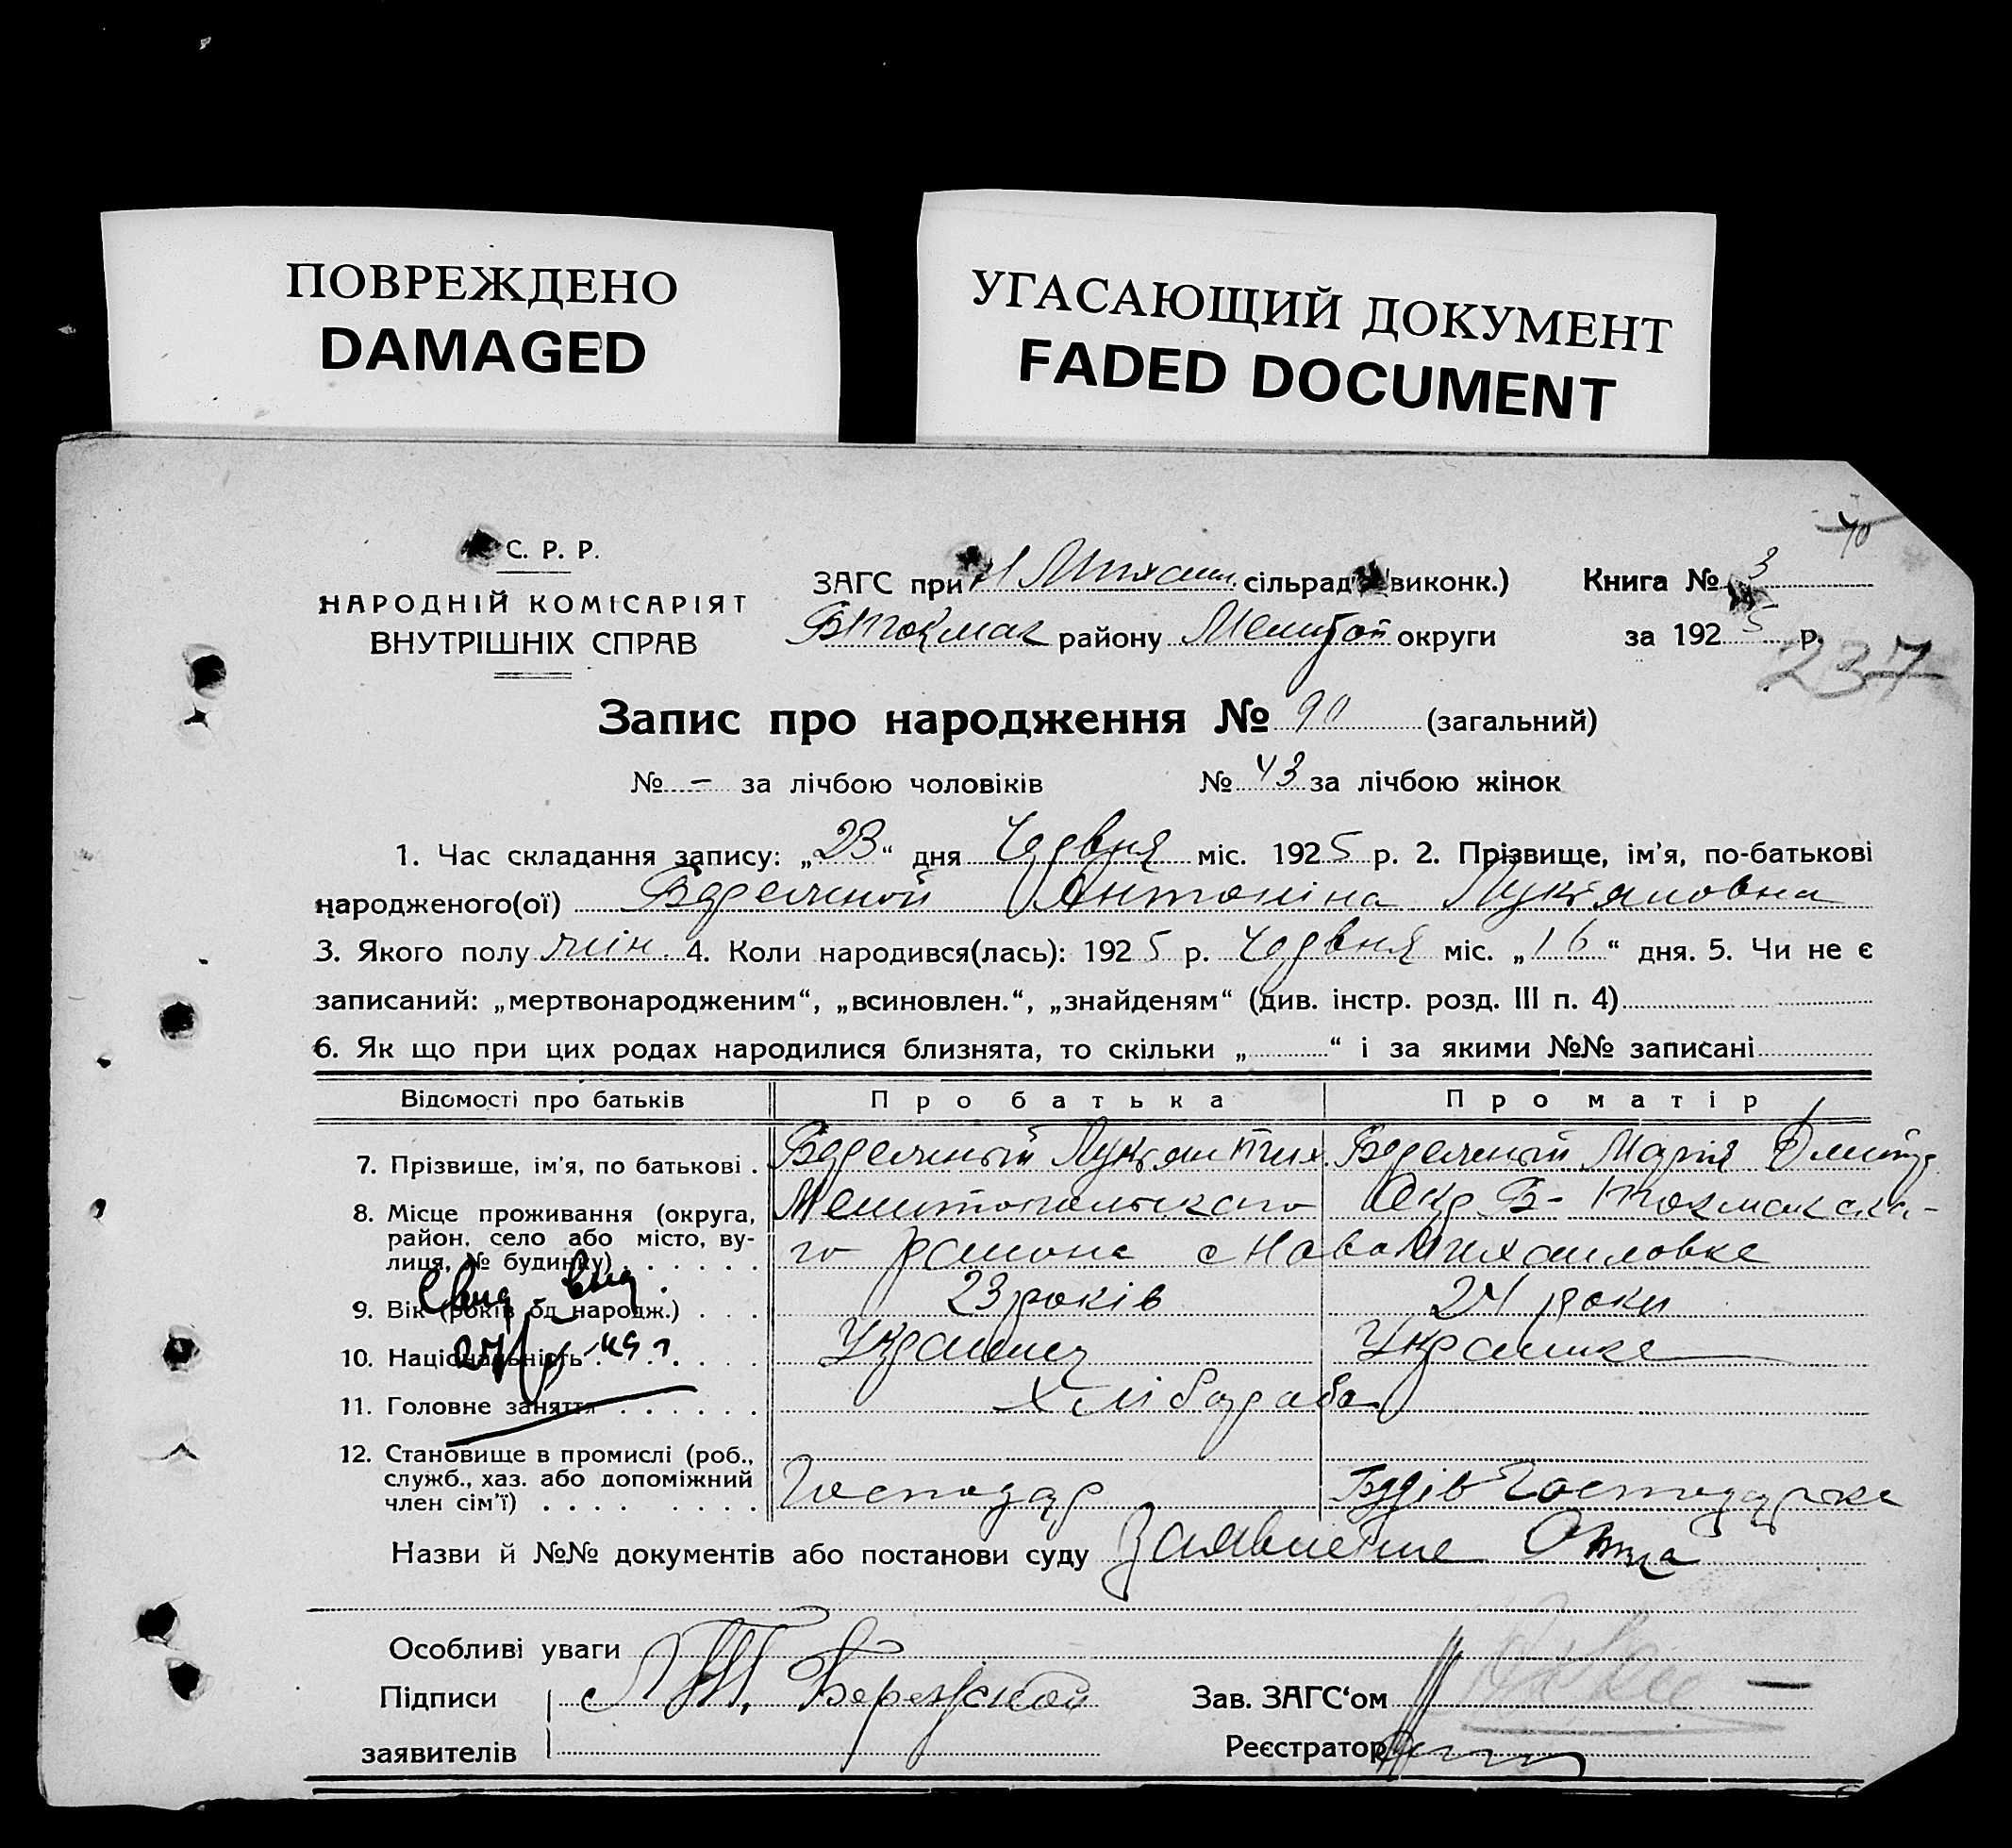 ПОВРЕЖДЕНО
DAMAGED
УГАСАЮЩИЙ ДОКУМЕНТ
FADED DOCUMENT
70
С. Р. Р.
НАРОДНІЙ КОМІСАРІЯТ
ВНУТРІШНІХ СПРАВ
ЗАГС при Н Михайл. сільрад виконк.)
БТокмак району Мелитоп округи
Книга № 3
за 1925 р.
237
Запис про народження № 90 (загальний)
№ – за лічбою чоловіків № 43 за лічбою жінок
1. Час складання запису: „23“ дня Червня міс. 1925 р. 2. Прізвище, ім'я, по-батькові
народженого(ої) Антоніна Лукьяновна
3. Якого полу жін. 4. Коли народився(лась): 1925 р. Червня міс. „16“ дня. 5. Чи не є
записаний: „мертвонародженим“, „всиновлен.“, „знайденям“ (див. інстр. розд. III п. 4)
6. Як що при цих родах народилися близнята, то скільки „ “ і за якими №№ записані
Відомості про батьків Про батька Про матір
7. Прізвище, ім'я, по батькові . Лукьян Тих. Марія Дмитр
8. Місце проживання (округа, район, село або місто, вулиця, № будинку) . . . . . . Мелитопольскаго Окр Б-Токмакска-
го района с Ново Михайловке
9. Вік (років од народж.) . . . 23 років 24 роки
10. Національність . . . . . . Украинец Украинка
11. Головне заняття . . . . . . Хлібораба
12. Становище в промислі (роб., служб., хаз. або допоміжний член сім'ї) . . . . . . . . . Господар Господарка
Свид. вид.
27/ 49 г
Назви й №№ документів або постанови суду Заявление Отца
Особливі уваги
Підписи
заявителів
Зав. ЗАГС'ом
Реєстратор